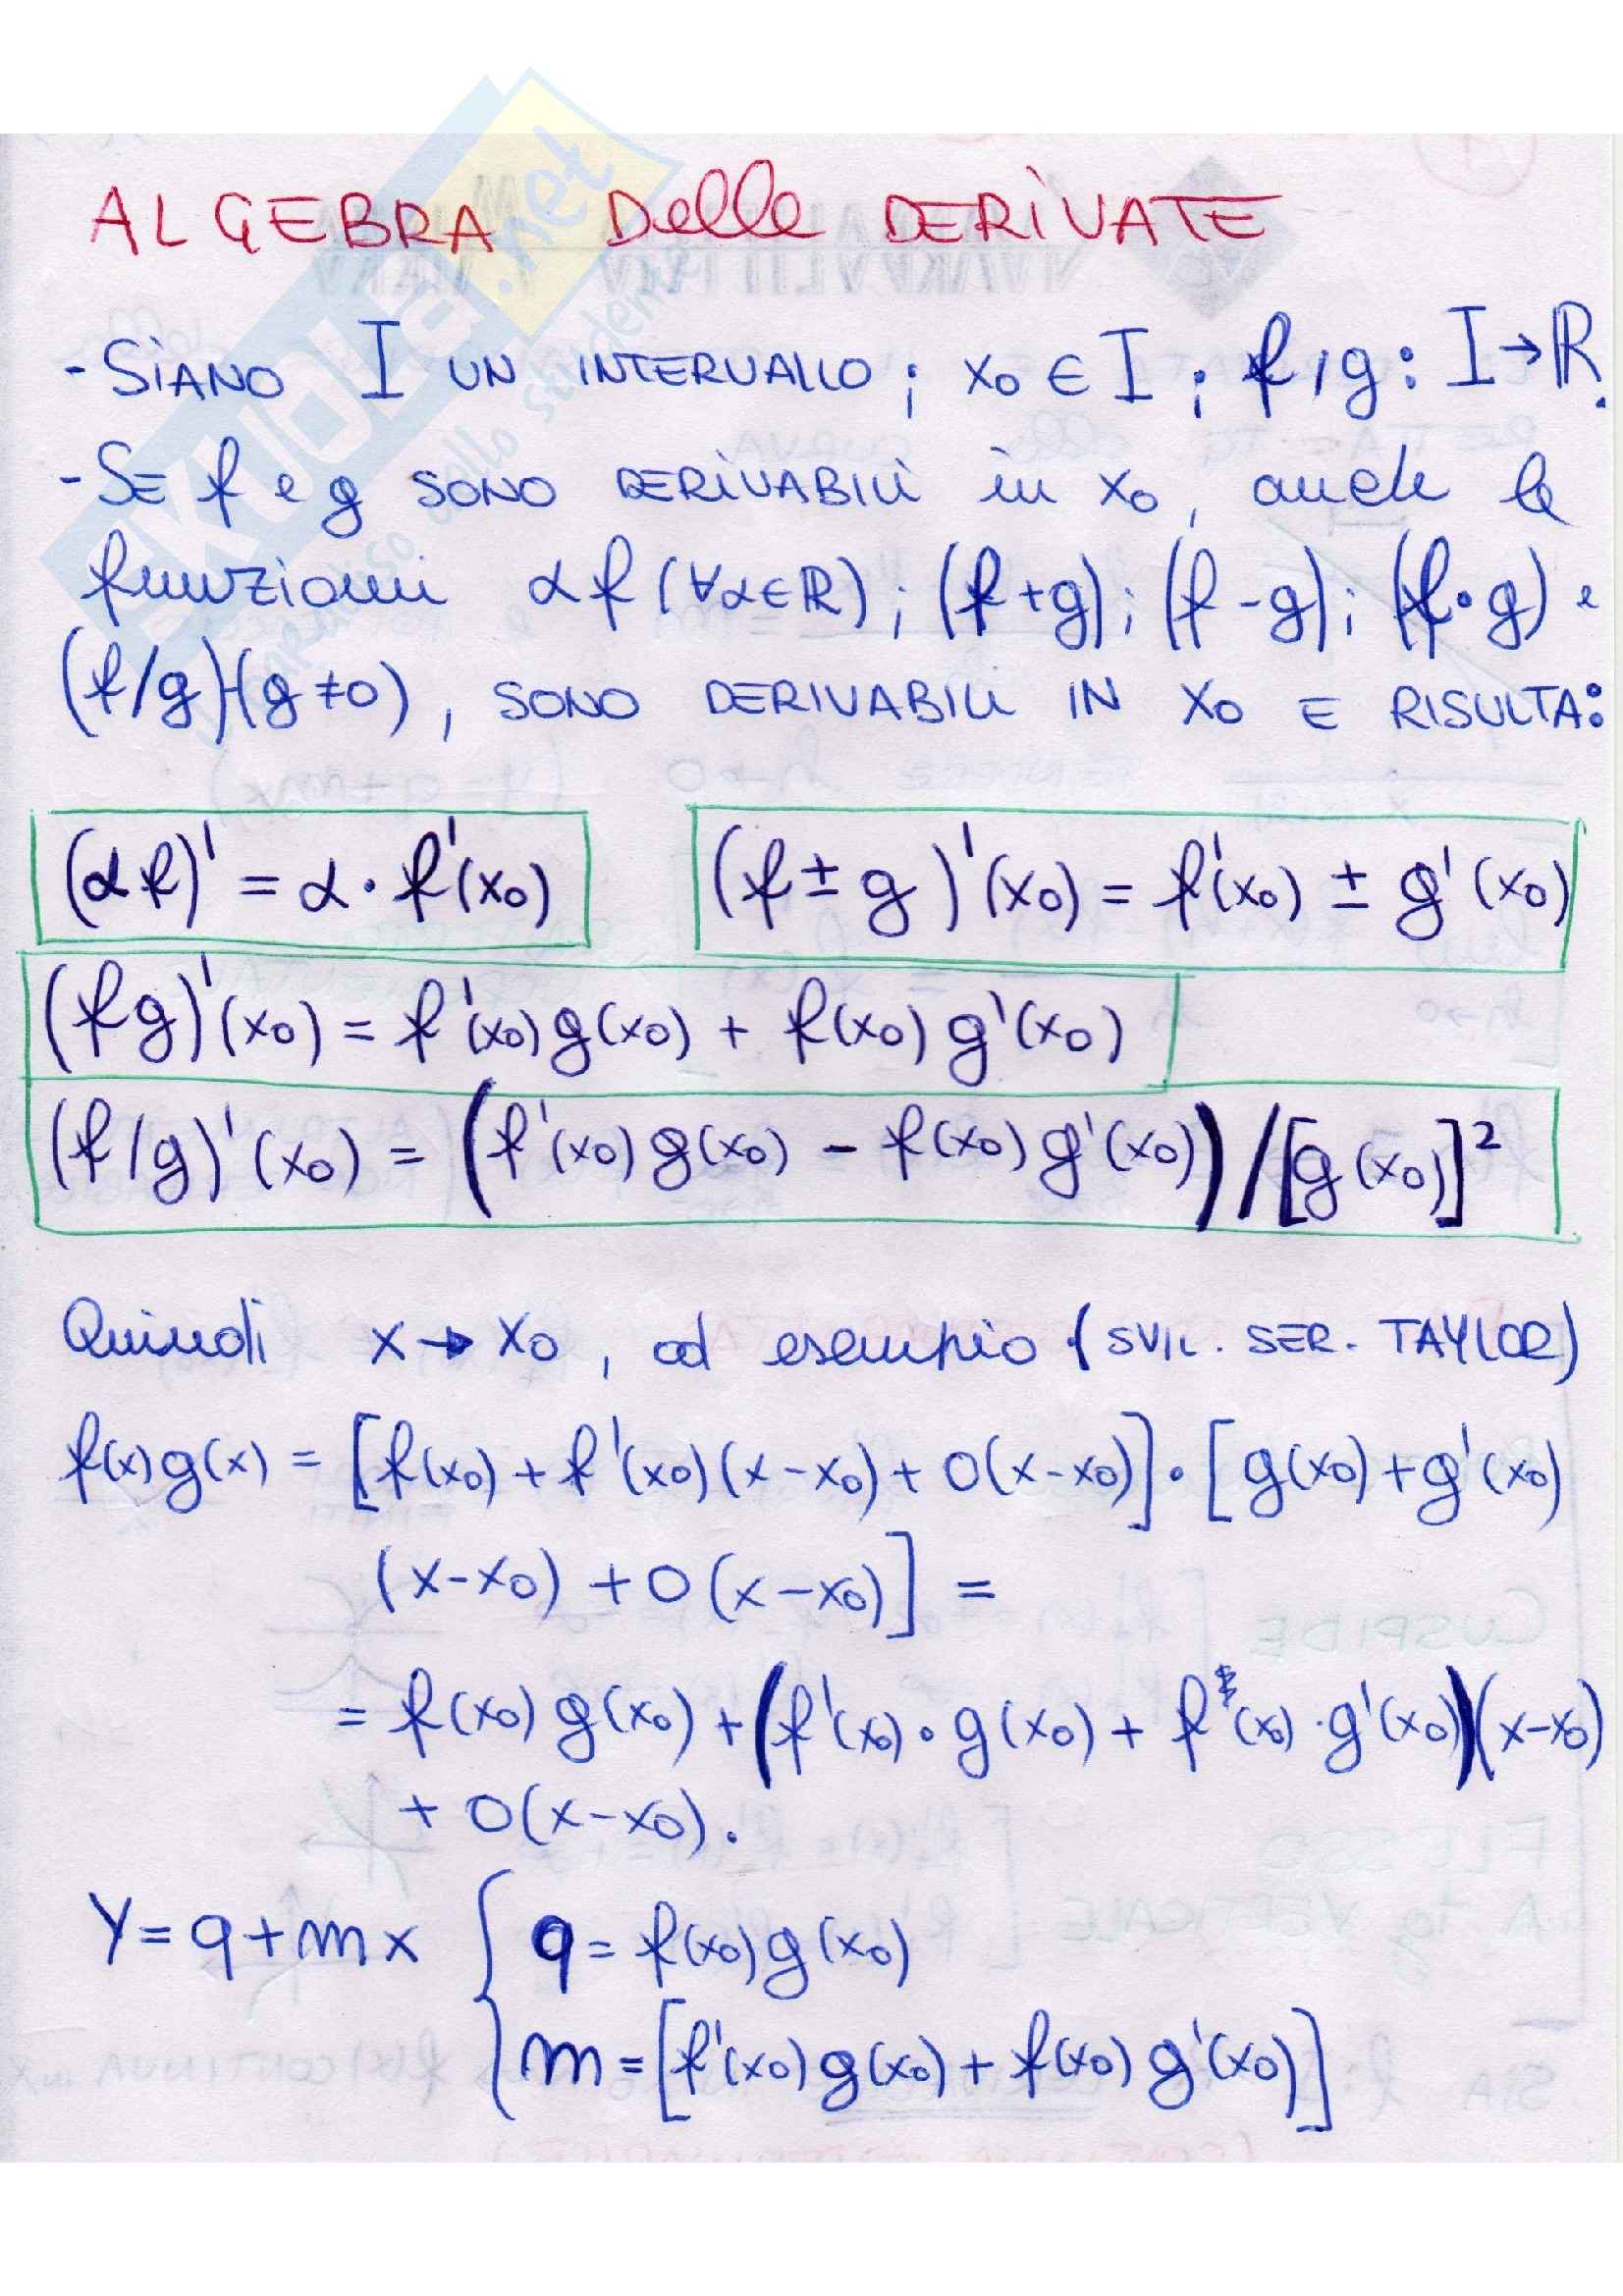 ALGEBRA Delle DERIVATE
- SIANO I UN INTERVALLO ; x₀ ∈ I ; f, g : I → ℝ.
- SE f e g SONO DERIVABILI in x₀, anche le
funzioni αf (∀α∈ℝ) ; (f+g) ; (f-g) ; (f•g) e
(f/g)(g≠0), SONO DERIVABILI IN x₀ E RISULTA:
(αf)' = α · f'(x₀) (f ± g)'(x₀) = f'(x₀) ± g'(x₀)
(fg)'(x₀) = f'(x₀) g(x₀) + f(x₀) g'(x₀)
(f/g)'(x₀) = (f'(x₀) g(x₀) − f(x₀) g'(x₀)) / [g(x₀)]²
Quindi x → x₀, ad esempio (SVIL. SER. TAYLOR)
f(x) g(x) = [f(x₀) + f'(x₀)(x−x₀) + o(x−x₀)] • [g(x₀) + g'(x₀)
(x−x₀) + o(x−x₀)] =
= f(x₀) g(x₀) + (f'(x₀) • g(x₀) + f(x₀) · g'(x₀))(x−x₀)
+ o(x−x₀).
Y = q + mx { q = f(x₀) g(x₀)
m = [f'(x₀) g(x₀) + f(x₀) g'(x₀)]